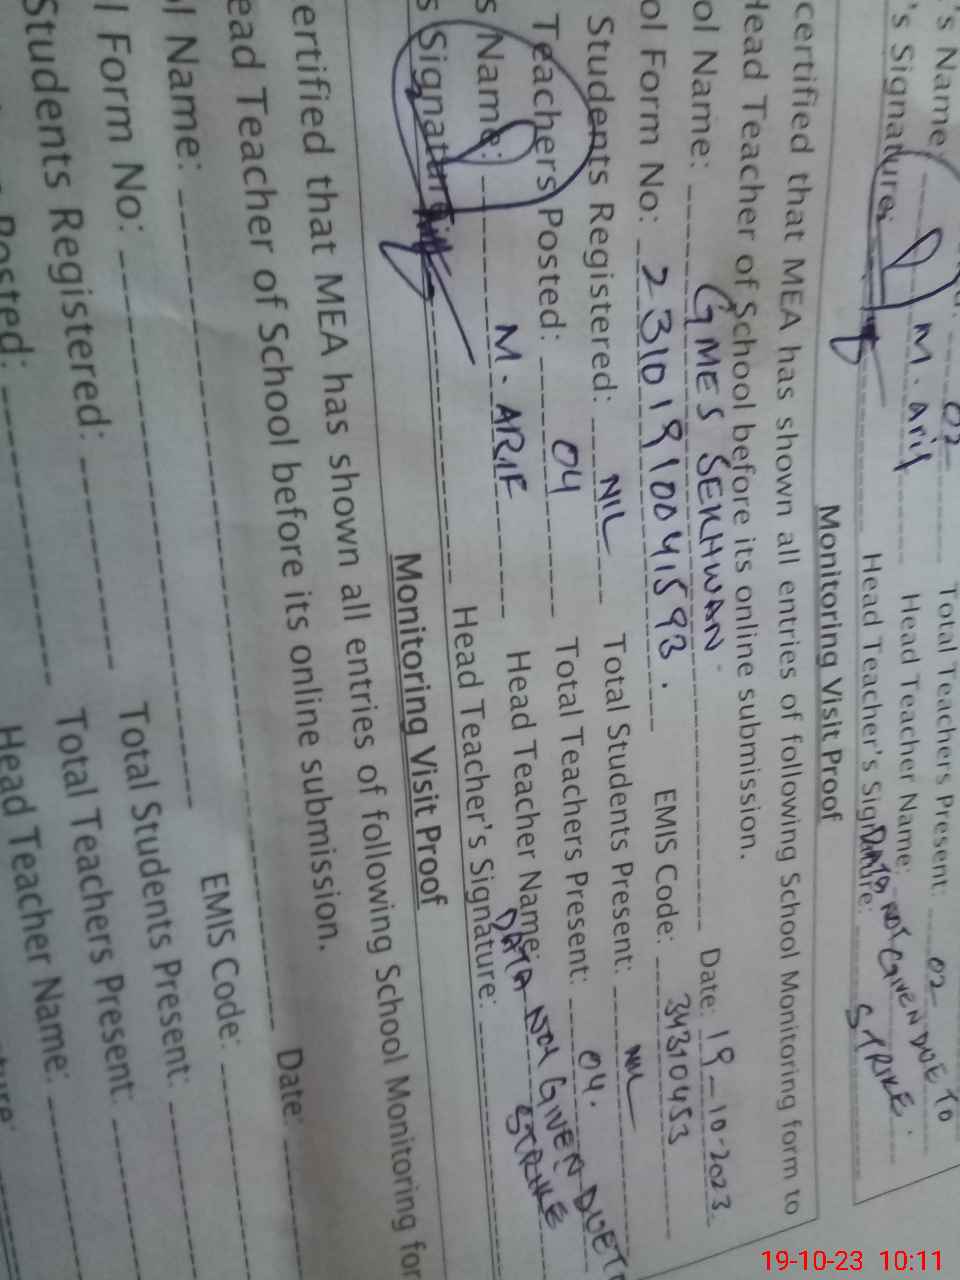 's Name: M. Arif Head Teacher Name:
's Signature: Head Teacher's Signature: DATA NOT GIVEN DUE TO STRIKE.
02 Total Teachers Present: 02
Monitoring Visit Proof
certified that MEA has shown all entries of following School Monitoring form to
Head Teacher of School before its online submission.
ol Name: GMES SEKHWAN Date: 19-10-2023
ol Form No: 23101910041593. EMIS Code: 34310453
Students Registered: NIL Total Students Present: NIL
Teachers Posted: 04 Total Teachers Present: 04.
s Name: M. ARIF Head Teacher Name: DATA NOT GIVEN DUE T
s Signature: Head Teacher's Signature: STRIKE
Monitoring Visit Proof
ertified that MEA has shown all entries of following School Monitoring for
ead Teacher of School before its online submission.
ol Name: Date:
l Form No: EMIS Code:
Students Registered: Total Students Present:
Posted: Total Teachers Present:
Head Teacher Name:
ture:
19-10-23 10:11